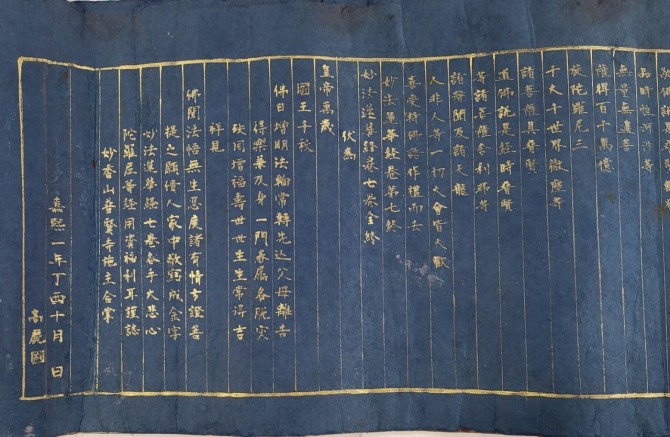 品時恒河沙等
無量無邊菩
薩得百千萬億
旋陀羅尼三
千大千世界微塵等
諸菩薩具普賢
道佛說是經時普賢
等諸菩薩舍利弗等
諸聲聞及諸天龍
人非人等一切大會皆大歡
喜受持佛語作禮而去
妙法蓮華經卷第七終
妙法蓮華經卷七卷全終
伏為
皇帝萬歲
國王千秋
佛日增明法輪常轉先亡父母離苦
得樂兼及身一門眷屬各脫灾
殃用增福壽世世生生常得吉
祥見
佛聞法悟無生忍度諸有情 證菩
提之願倩人家中敬寫成金字
妙法蓮華經七卷 手大悲心
陀羅尼等經用資福利耳謹誌
妙香山普賢寺施主合掌
嘉熙一年丁酉十月 日
高麗國